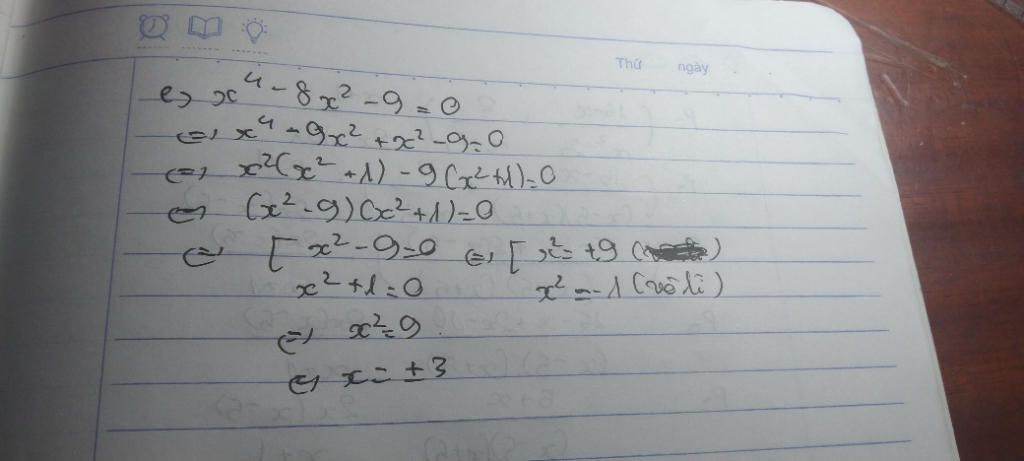 Thứ ngày
e) x⁴ - 8x² - 9 = 0
⇔ x⁴ - 9x² + x² - 9 = 0
⇔ x²(x² + 1) - 9(x² + 1) = 0
⇔ (x² - 9)(x² + 1) = 0
⇔ [ x² - 9 = 0 ⇔ [ x² = +9 ( )
x² + 1 = 0 x² = -1 (vô lí)
⇔ x² = 9
⇔ x = ± 3